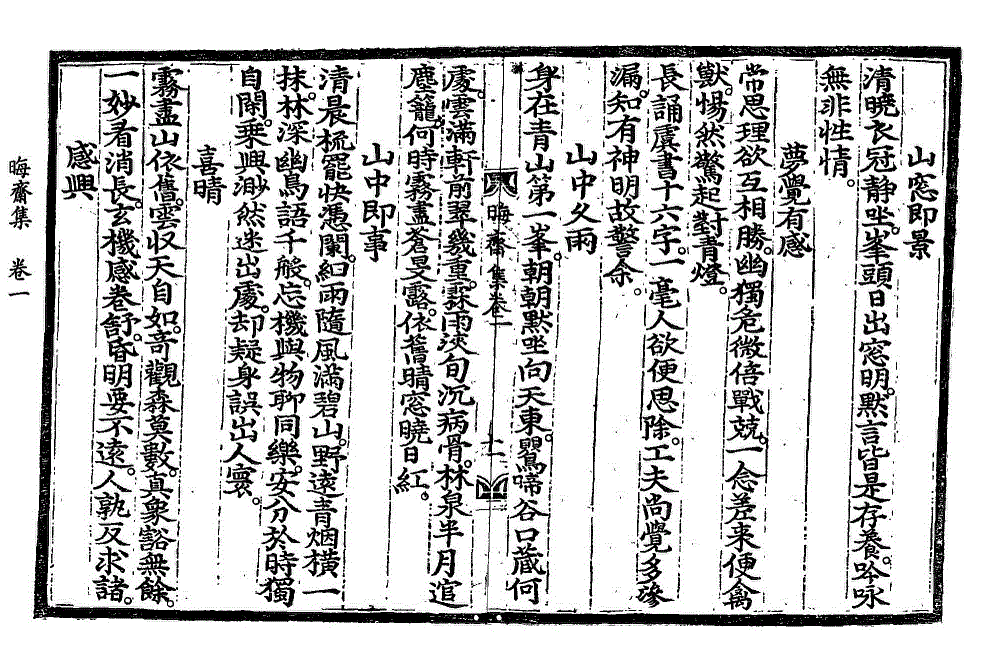 山窓即景
清曉衣冠靜坐。峯頭日出窓明。默言皆是存養。吟咏
無非性情。
夢覺有感
常思理欲互相勝。幽獨危微倍戰兢。一念差來便禽
獸。惕然驚起對青燈。
長誦虞書十六字。一毫人欲便思除。工夫尚覺多滲
漏。知有神明故警余。
山中久雨
身在青山第一峯。朝朝默坐向天東。鸎啼谷口藏何
晦齋集卷一
十一
處。雲滿軒前翠幾重。霖雨浹旬沉病骨。林泉半月逭
塵籠。何時霧盡蒼旻露。依舊晴窓曉日紅。
山中即事
清晨梳罷快憑闌。細雨隨風滿碧山。野遠青烟橫一
抹。林深幽鳥語千般。忘機與物聊同樂。安分於時獨
自閑。乘興渺然迷出處。却疑身誤出人寰。
喜晴
霧盡山依舊。雲收天自如。奇觀森莫數。眞象豁無餘。
一妙看消長。玄機感卷舒。昏明要不遠。人孰反求諸。
感興
晦齋集 卷一